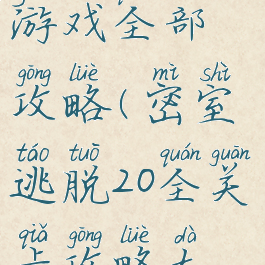 游戏全部
gōng lüè mì shì
攻略(密室
táo tuō quán guān
逃脱20全关
qiǎ gōng lüè dà
卡攻略大